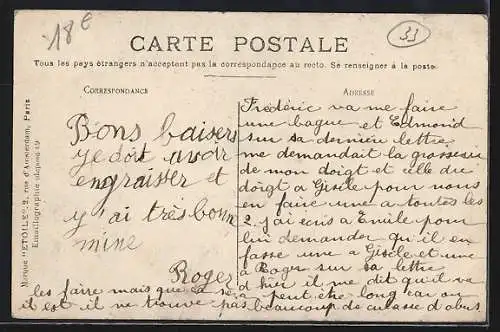 18€
33
CARTE POSTALE
Tous les pays étrangers n'acceptent pas la correspondance au recto. Se renseigner à la poste
CORRESPONDANCE
ADRESSE
Marque "ETOILE" 2, rue d'Amsterdam, Paris
Emaillographie
Bons baisers
je doit avoir
engraisser et
j'ai très bonn
mine
Roger
Frédéric va me faire
une bague et Edmond
sur sa dernière lettre
me demandait la grosseur
de mon doigt et celle du
doigt a Gisèle pour nous
en faire une a toutes les
2. j'ai écris a Emile pour
lui demander qu'il en
fasse une a Gisèle et une
a Roger sur sa lettre
d'hier il me dit qu'il va
les faire mais que ça se a peut être long car ou
il est il ne trouve pas beaucoup de culasse d'obus